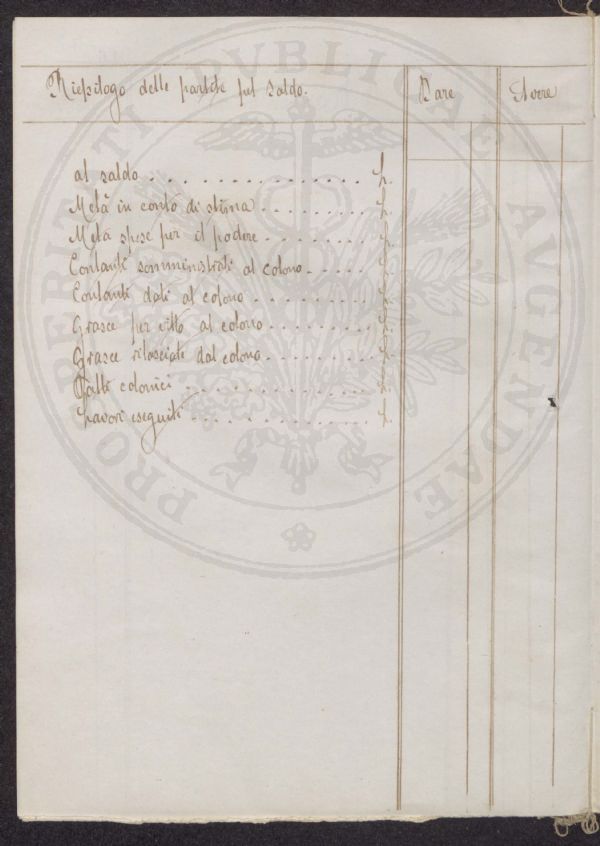 Riepilogo delle partite pel saldo. Dare Avere
al saldo . . . . . . . . . . . . . . . . L.
Metà in conto di stima . . . . . . . . L.
Metà spese per il podere . . . . . . . . L.
Contanti somministrati al colono . . . . . L.
Contanti dati al colono . . . . . . . . . L.
Grasce per vitto al colono . . . . . . . . L.
Grasce rilasciate dal colono . . . . . . . . L.
Patti colonici . . . . . . . . . . . . . L.
Lavori eseguiti . . . . . . . . . . . . L.
PROSPERITATI PVBLICAE AVGENDAE